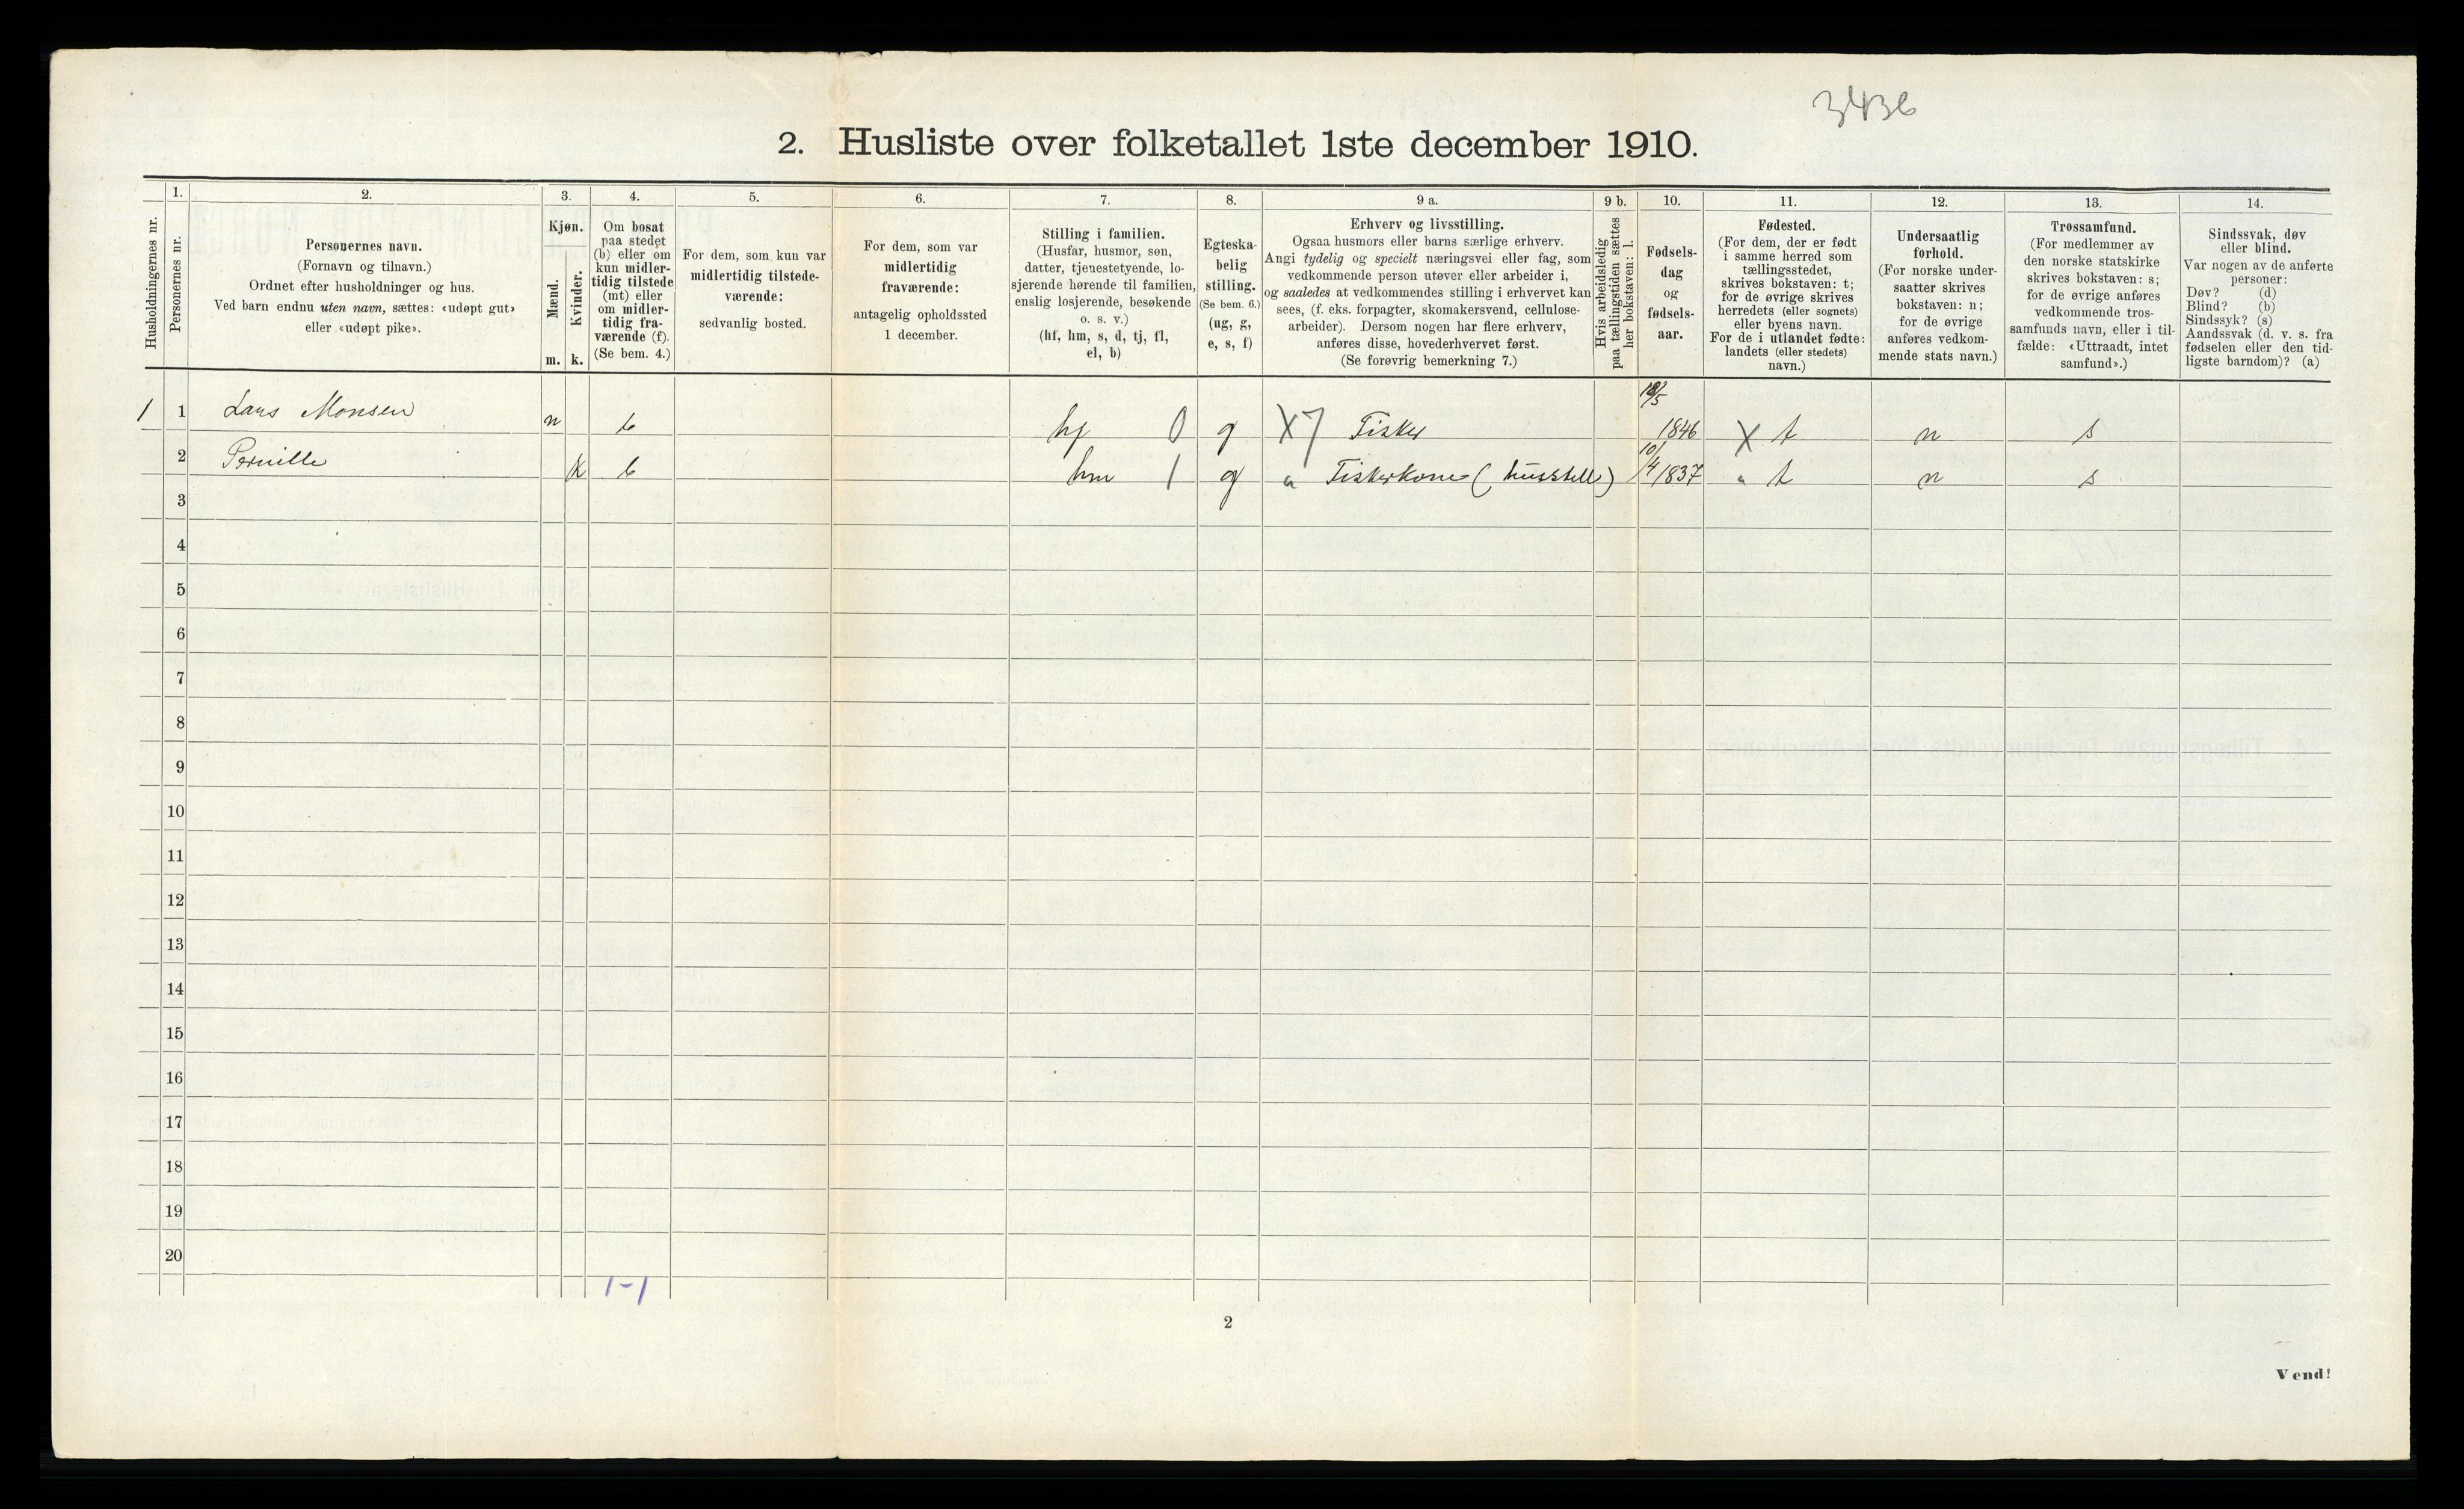 3436
2. Husliste over folketallet 1ste december 1910.
Husholdningernes nr.
1.
Personernes nr.
2.
Personernes navn.
(Fornavn og tilnavn.)
Ordnet efter husholdninger og hus.
Ved barn endnu uten navn, sættes: «udøpt gut»
eller «udøpt pike».
3.
Kjøn.
Mænd.
Kvinder.
m. k.
4.
Om bosat
paa stedet
(b) eller om
kun midler-
tidig tilstede
(mt) eller
om midler-
tidig fra-
værende (f).
(Se bem. 4.)
5.
For dem, som kun var
midlertidig tilstede-
værende:
sedvanlig bosted.
6.
For dem, som var
midlertidig
fraværende:
antagelig opholdssted
1 december.
7.
Stilling i familien.
(Husfar, husmor, søn,
datter, tjenestetyende, lo-
sjerende hørende til familien,
enslig losjerende, besøkende
o. s. v.)
(hf, hm, s, d, tj, fl,
el, b)
8.
Egteska-
belig
stilling.
(Se bem. 6.)
(ug, g,
e, s, f)
9 a.
Erhverv og livsstilling.
Ogsaa husmors eller barns særlige erhverv.
Angi tydelig og specielt næringsvei eller fag, som
vedkommende person utøver eller arbeider i,
og saaledes at vedkommendes stilling i erhvervet kan
sees, (f. eks. forpagter, skomakersvend, cellulose-
arbeider). Dersom nogen har flere erhverv,
anføres disse, hovederhvervet først.
(Se forøvrig bemerkning 7.)
9 b.
Hvis arbeidsledig
paa tællingstiden sættes
her bokstaven: l.
10.
Fødsels-
dag
og
fødsels-
aar.
11.
Fødested.
(For dem, der er født
i samme herred som
tællingsstedet,
skrives bokstaven: t;
for de øvrige skrives
herredets (eller sognets)
eller byens navn.
For de i utlandet fødte:
landets (eller stedets)
navn.)
12.
Undersaatlig
forhold.
(For norske under-
saatter skrives
bokstaven: n;
for de øvrige
anføres vedkom-
mende stats navn.)
13.
Trossamfund.
(For medlemmer av
den norske statskirke
skrives bokstaven: s;
for de øvrige anføres
vedkommende tros-
samfunds navn, eller i til-
fælde: «Uttraadt, intet
samfund».)
14.
Sindssvak, døv
eller blind.
Var nogen av de anførte
personer:
Døv? (d)
Blind? (b)
Sindssyk? (s)
Aandssvak (d. v. s. fra
fødselen eller den tid-
ligste barndom)? (a)
1 1 Lars Monsen m b hf 0 g X7 Fisker 1846 X t n s
2 Pernille k b hm 1 g " Fiskerkone (husstell) 10/4 1837 " t n s
3
4
5
6
7
8
9
10
11
12
13
14
15
16
17
18
19
20
1-1
2
Vend!